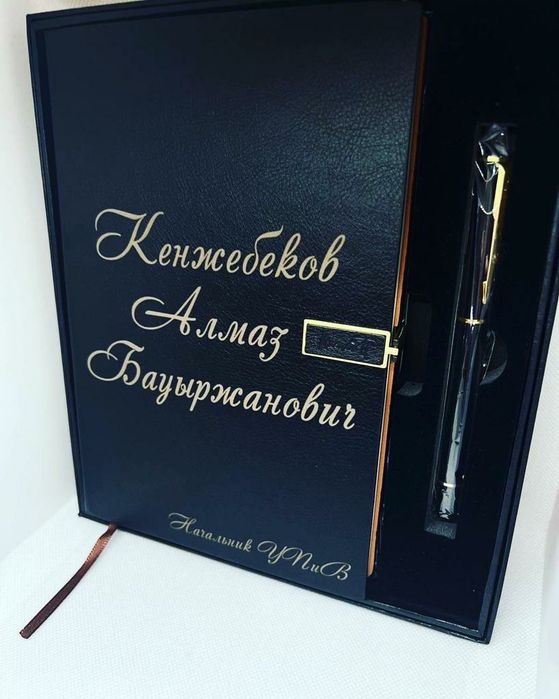 Кенжебеков
Алмаз
Бауыржанович
Начальник УПиВ